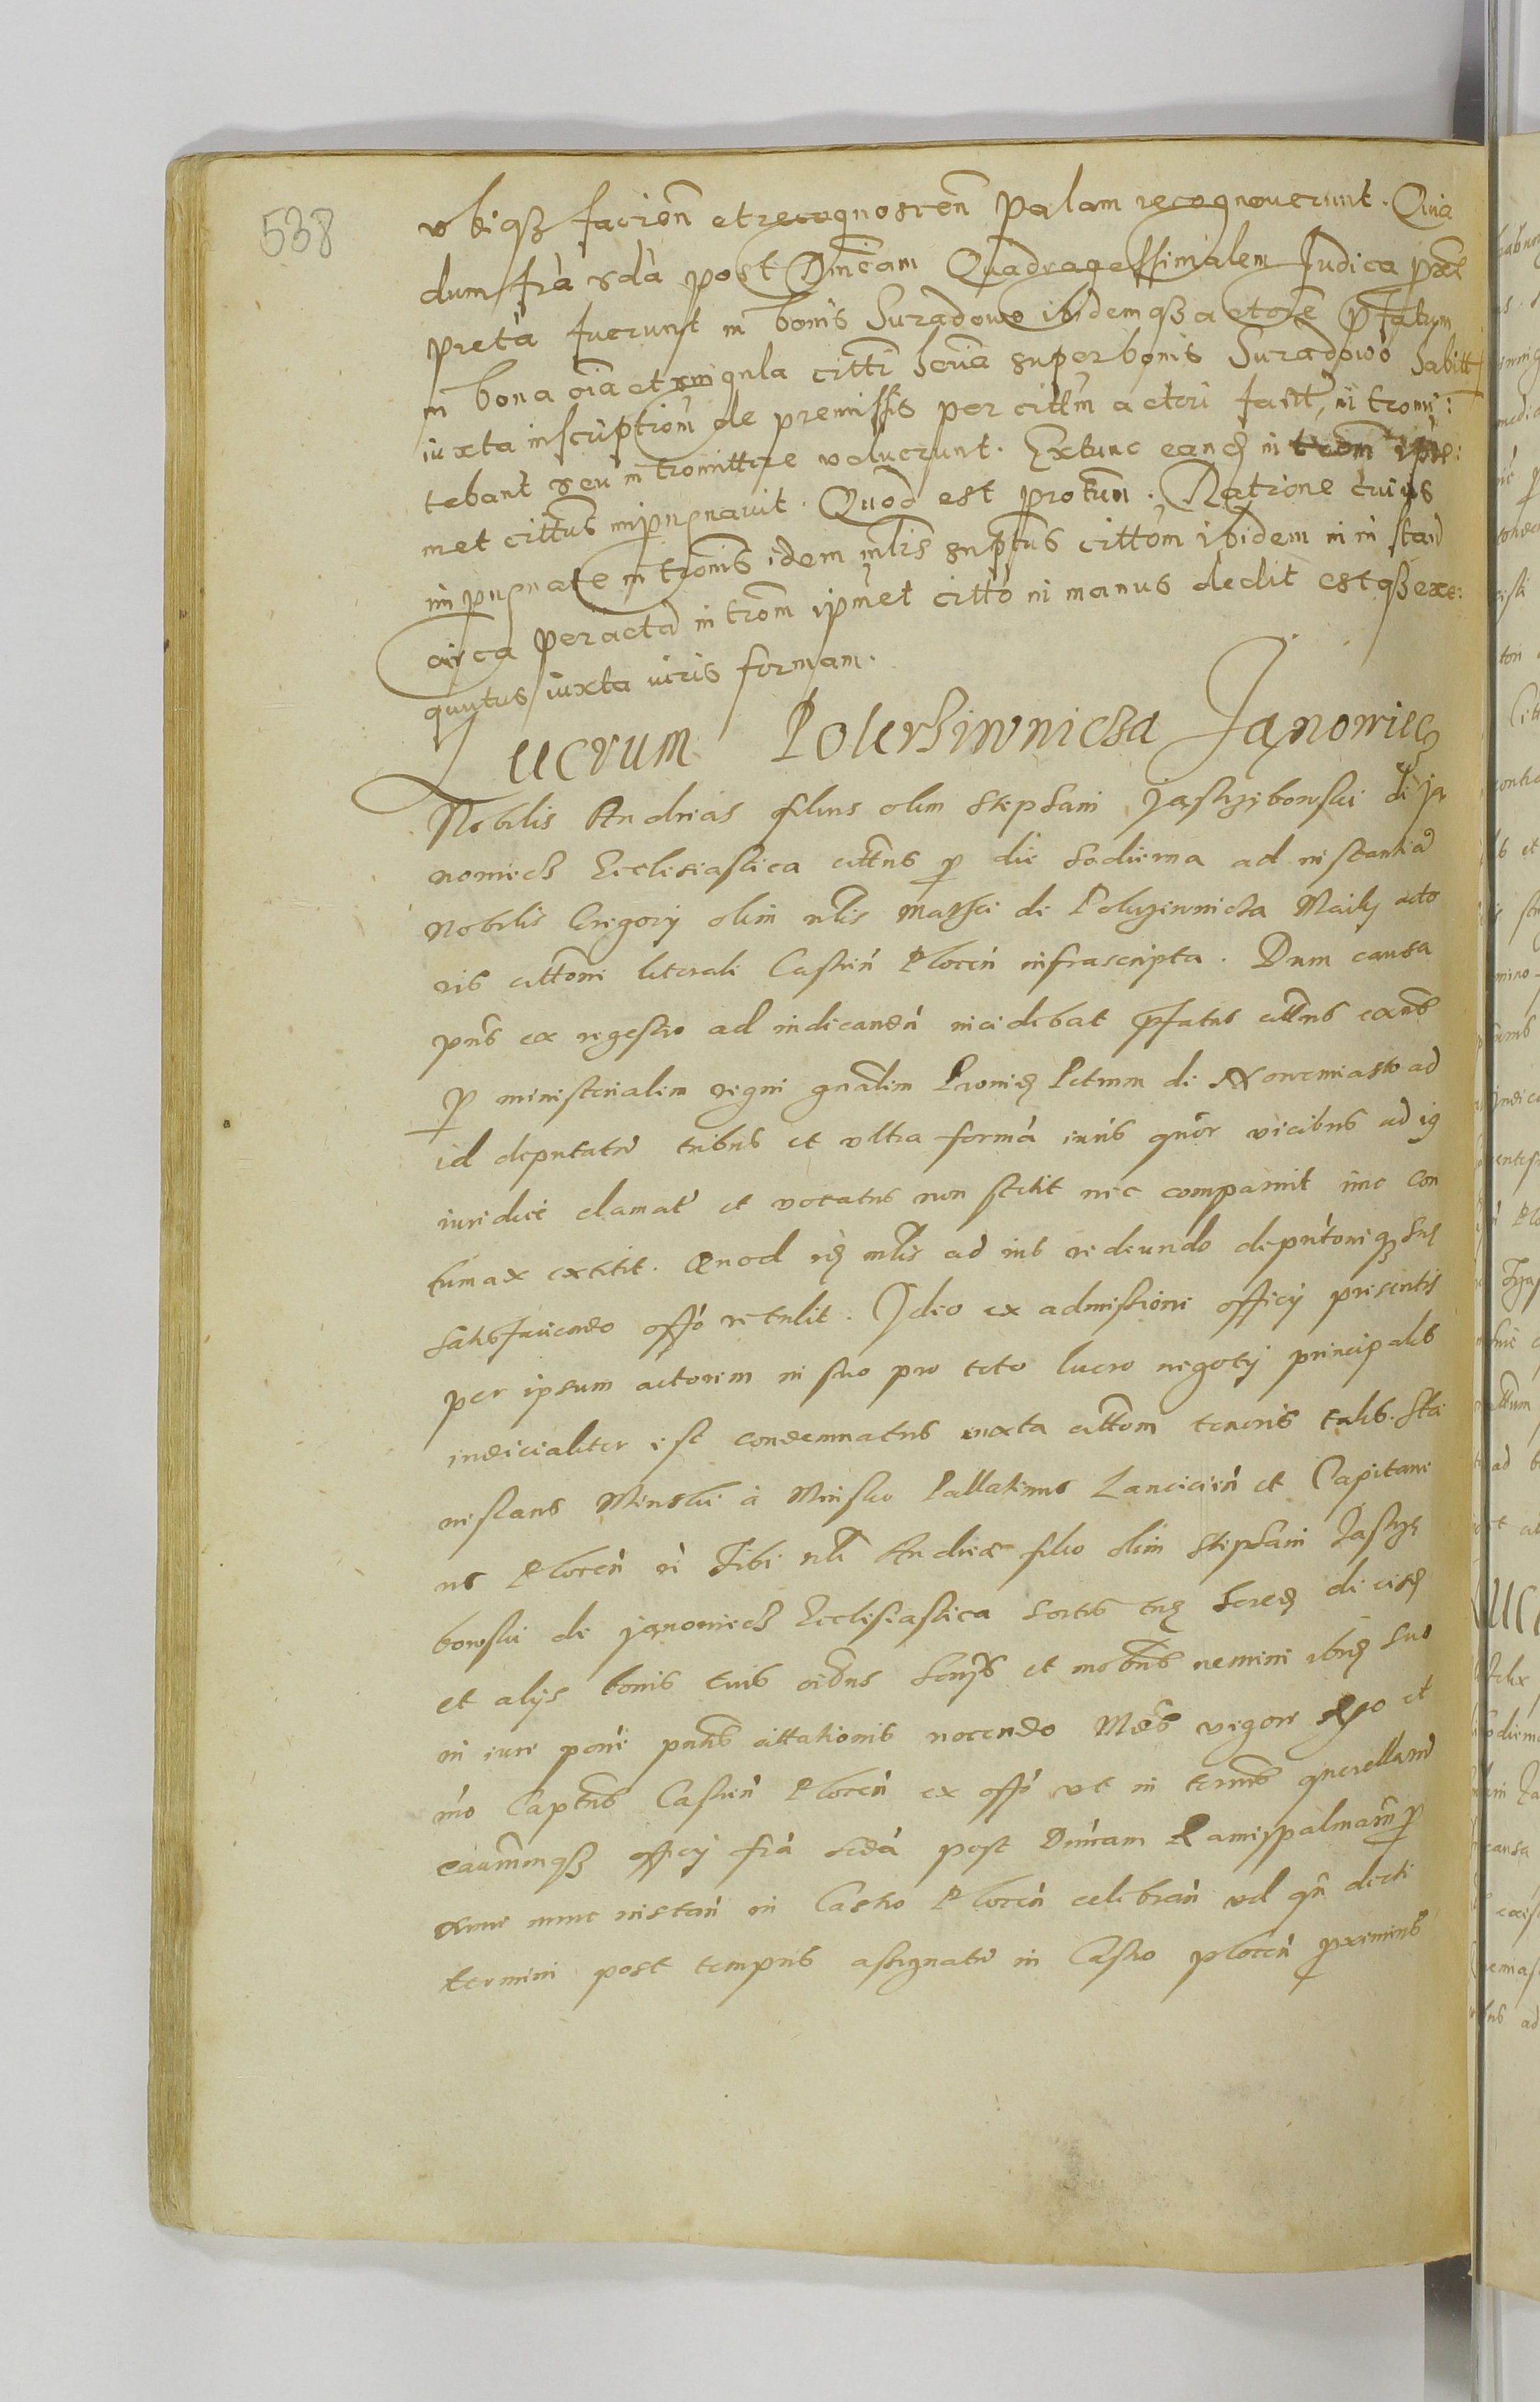 538
vbiqz facien et recognoscen palam recognouerunt. Quia
dum fra 2da post Dnicam Quadragessimalem Judica pxe
preta fuerunt in bonis Suradowo ibidemqz actore pfatum
in bona oia et singula citti hena super bonis Suradowo habitt
iuxta inscriptiom de premissis per cittm actori fact, intromi:
tebant seu intromittere voluerunt. Extunc eand in trom ipse:
met cittus impugnauit. Quod est protum. Ratione cuius
impugnate intromis idem mlis suptus cittom ibidem in instan
circa peracta introm ipmet citto in manus dedit estqz exe:
quutus iuxta iuris formam.
Lucrum Polerhiwnicza Janowiecz
Nobilis Andreas filius olim Stephani Jastrzibowski de Ja
nowiecz Ecclesiastica cittus p die hodierna ad instantia
Nobilis Gregorij olim nlis Mathei de Polyziwnicza Maily acto
ris cittom literali Castrin Plocen infrascripta. Dum causa
pns ex regestro ad iudicanda incidebat pfatus cittus eaus
p ministerialem regni gnalem Prouid Petrum de Nowemiasto ad
id deputatu tribus et vltra forma iuris quor vicibus ad iq
iuridice clamatu et vocatus non stetit nec comparuit imo con
tumax extitit. Quod id mlis ad ius redeundo deputoniqz sue
satisfaciendo offo retulit. Ideo ex admissione officij presentis
per ipsum actorem in suo pro toto lucro negotij principalis
iudicialiter est condemnatus iuxta cittom tenoris talis. Sta
nislaus Minski a Minsko Pallatinus Lancicien et Capitane
us Plocen Tibi nli Andrea filio olim Stephani Jastrze
bowski de Janowiecz Ecclesiastica sortis
et alijs bonis tuis oibus et mobus nemini
in iure pnte citationis nocendo Mdo vigore Rgo et
mo Captus Castren Plocen ex offo vt in termis querellaru
officij fra 2da post Dnicam Ramispalmaru p
nunc instan in Castro Plocen celebran vel qn dicti
termini post tempus assignatu in Castro Plocen pximius